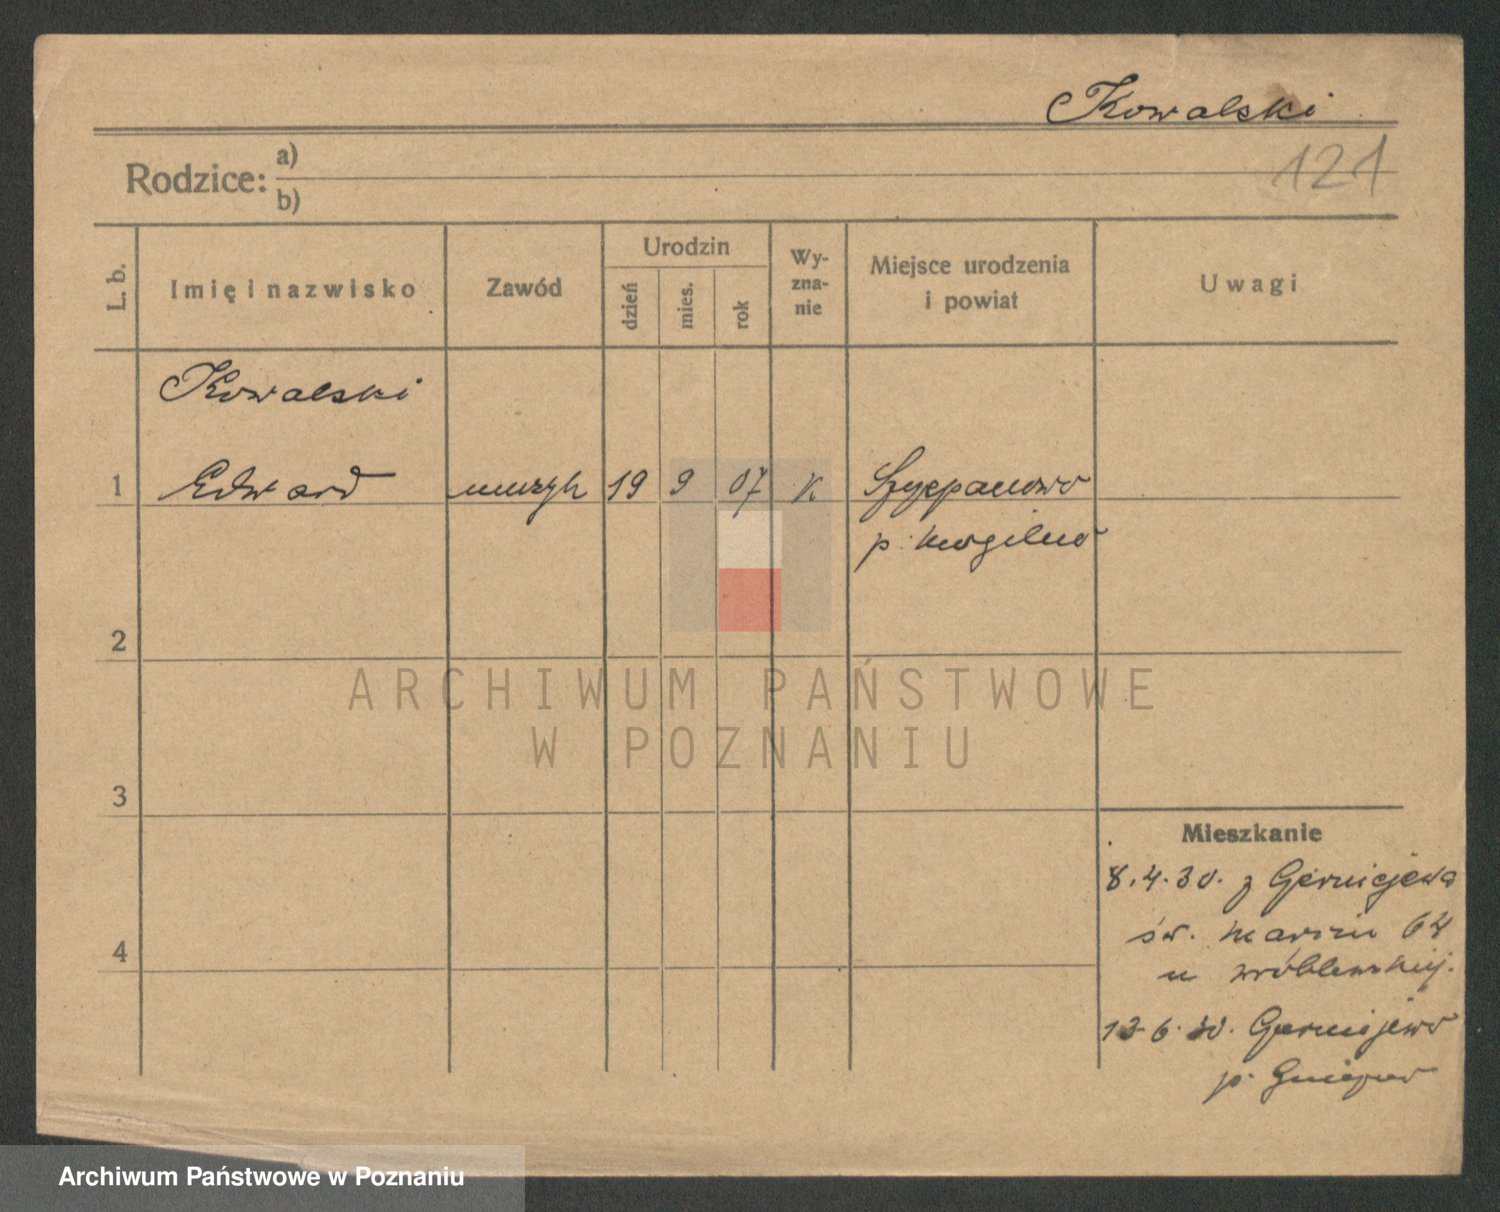 Kowalski
Rodzice: a)
b)
121
L. b.
Imię i nazwisko
Zawód
Urodzin
dzień
mies.
rok
Wy-
zna-
nie
Miejsce urodzenia
i powiat
Uwagi
Kowalski
1 Edward muzyk 19 9 07 K Szczepanowo
p. Mogilno
2
3
4
Mieszkanie
8.4.30. z
św. Marcin 64
u Wróblewskiej.
6.30.
p. Gniezno
ARCHIWUM PAŃSTWOWE
W POZNANIU
Archiwum Państwowe w Poznaniu